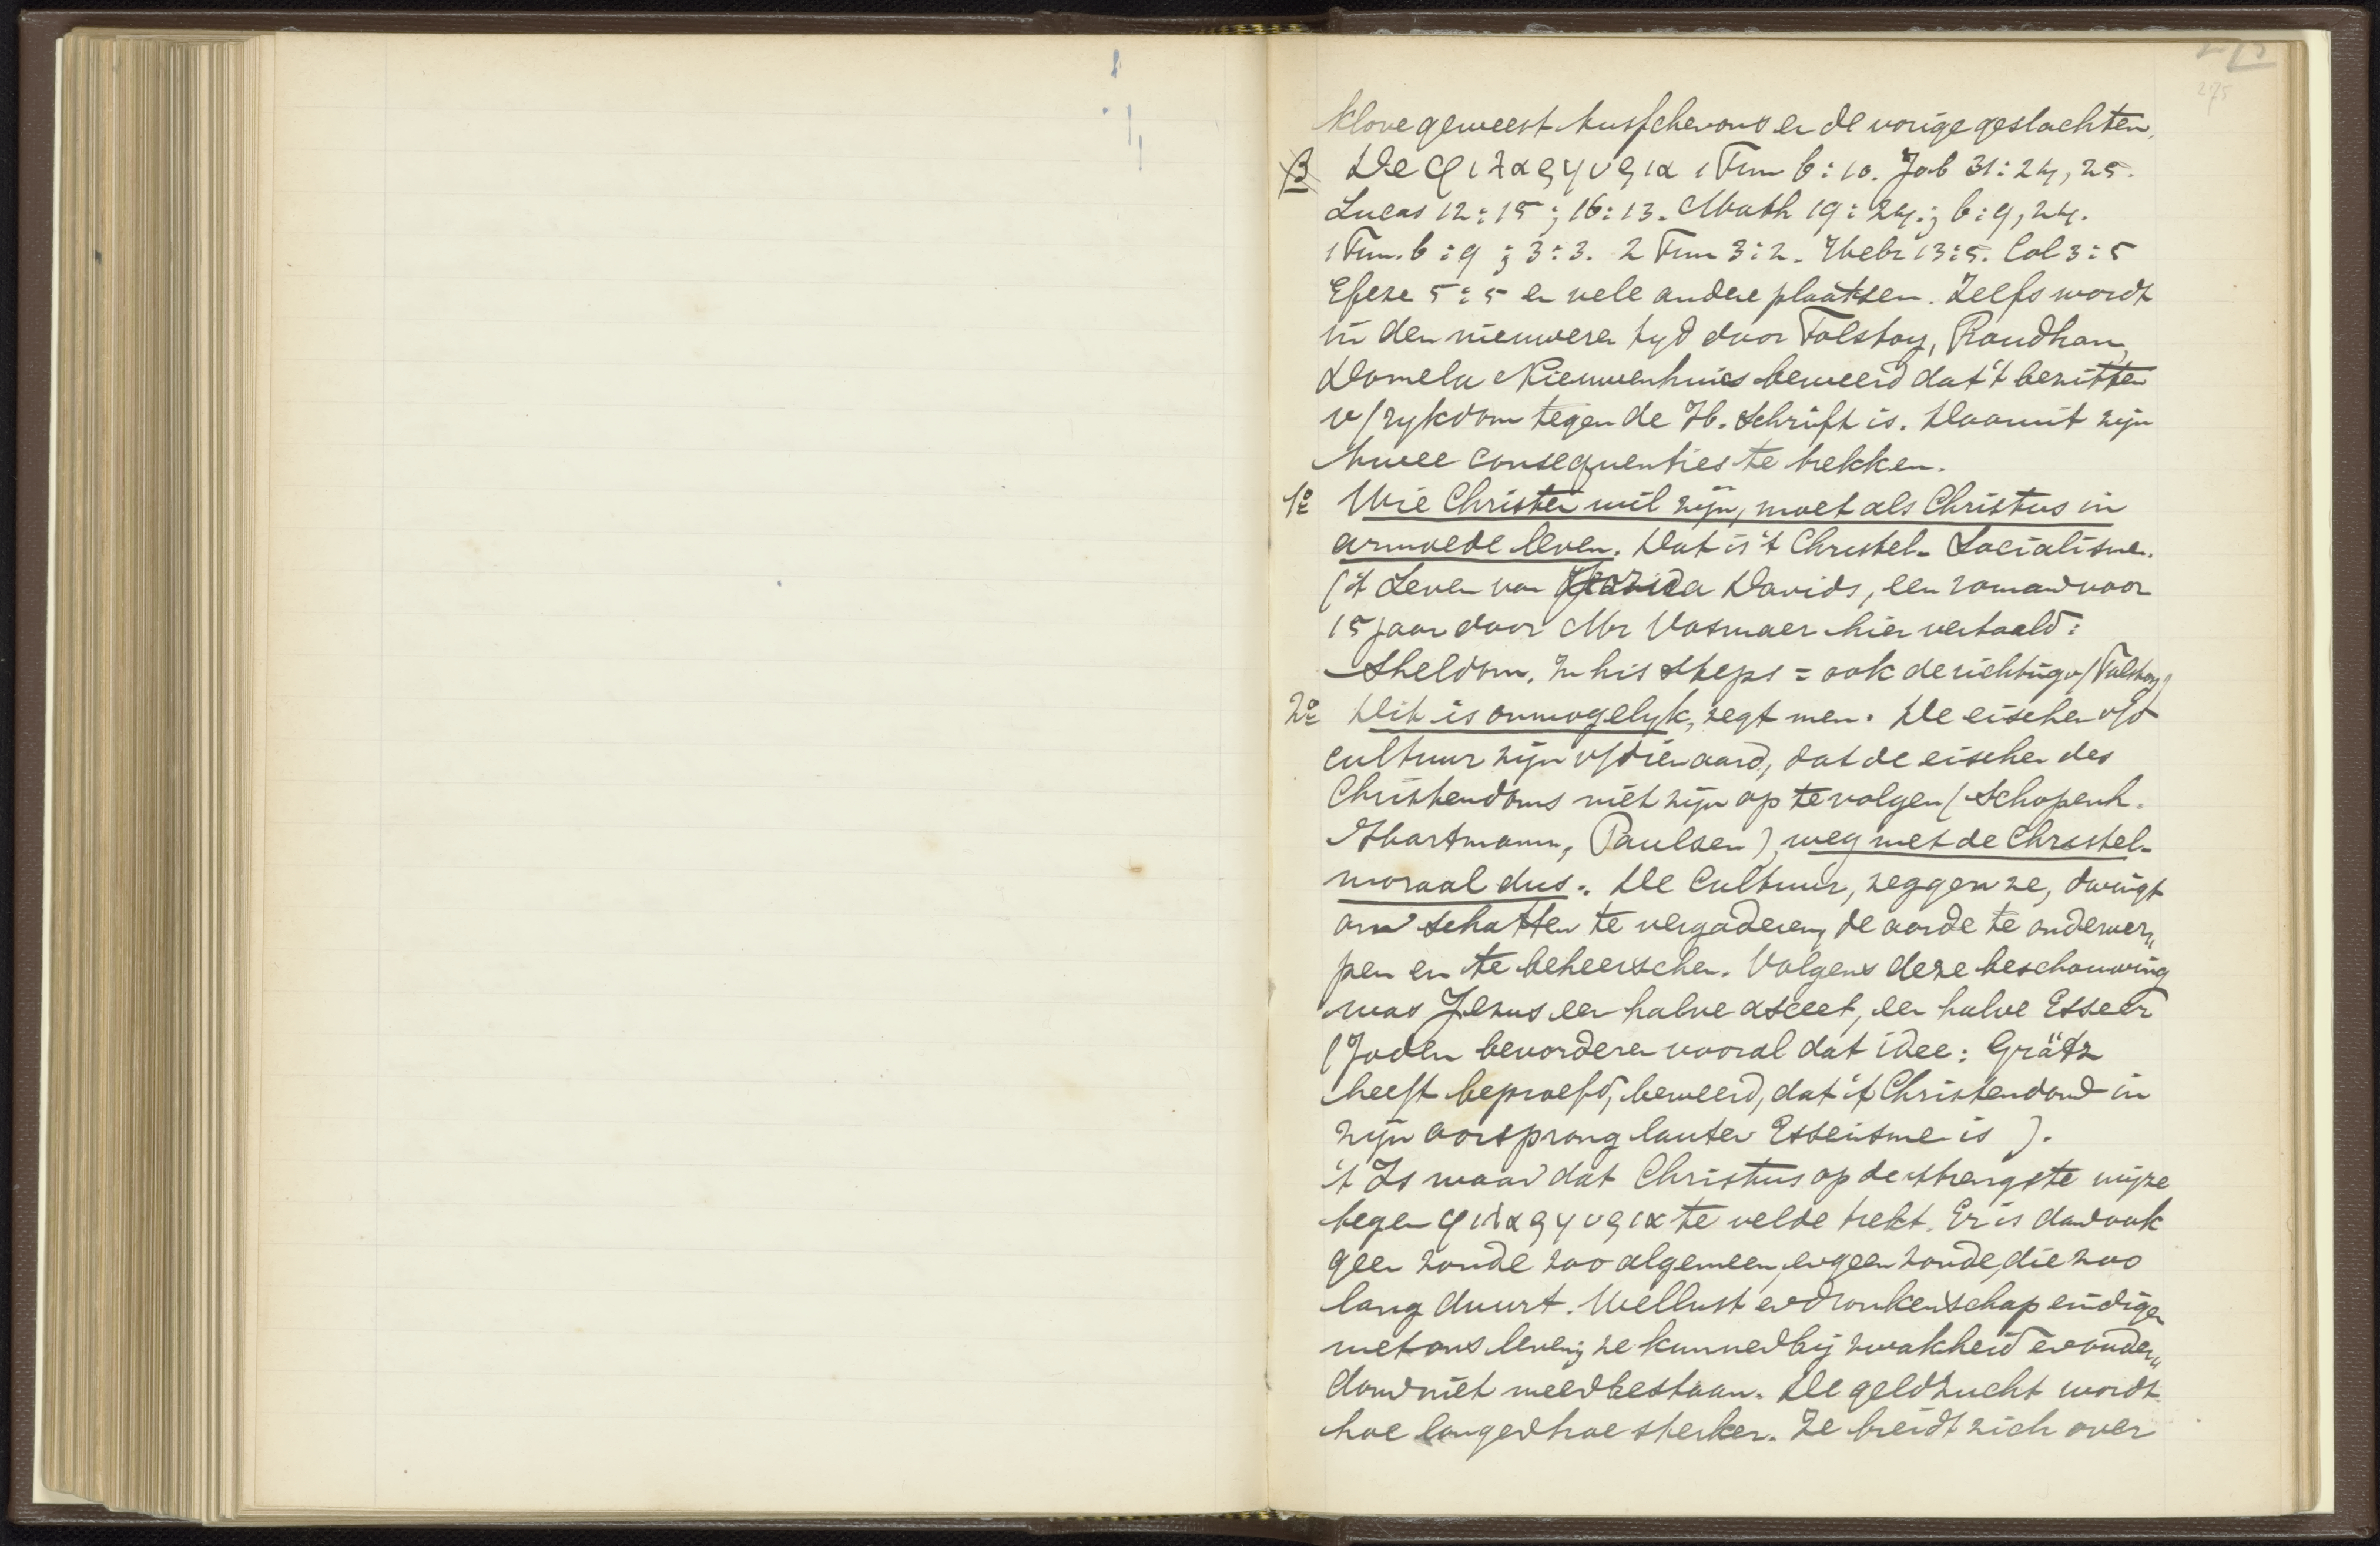 275
klove geweest tusschen ons en de vorige geslachten.
β De φιλαργυρια 1 Tim 6:10. Job 31:24, 25.
Lucas 12:15; 16:13. Math 19:24.; 6:9, 24.
1 Tim. 6:9; 3:3. 2 Tim 3:2. Hebr 13:5. Col 3:5
Efeze 5:5 en vele andere plaatsen. Zelfs wordt
in den nieuweren tyd door Tolstoy, Proudhon,
Domela Nieuwenhuis beweerd dat 't bezitten
v/rykdom tegen de H. Schrift is. Daaruit zijn
twee consequenties te trekken.
1o Wie Christen wil zijn, moet als Christus in
armoede leven. Dat is 't Christel. Socialisme.
('t Leven van Davids, een roman voor
15 jaar door Mr Vosmaer hier vertaald:
Sheldon. In his steps = ook de richting v/Tolstoy)
2o Dit is onmogelyk, zegt men. De eischen v/d
cultuur zijn v/dien aard, dat de eischen des
Christendoms niet zijn op te volgen (Schopenh.
Hartmann, Paulsen), weg met de Christel.
moraal dus. De Cultuur, zeggen ze, dwingt
om schatten te vergaderen, de aarde te onderwer„
pen en te beheerschen. Volgens deze beschouwing
was Jezus een halve asceet, een halve Esseër
(Joden bevorderen vooral dat idee: Grätz
heeft beproefd, beweerd, dat 't Christendom in
zijn oorsprong lauter Esseïsme is ).
't Is waar dat Christus op de strengste wijze
tegen φιλαργυρια te velde trekt. Er is dan ook
geen zonde zoo algemeen, en geen zonde, die zoo
lang duurt. Wellust en dronkenschap eindigen
met ons leven; ze kunnen bij zwakheid en ouder„
dom niet meer bestaan. De geldzucht wordt
hoe langer hoe sterker. Ze breidt zich over